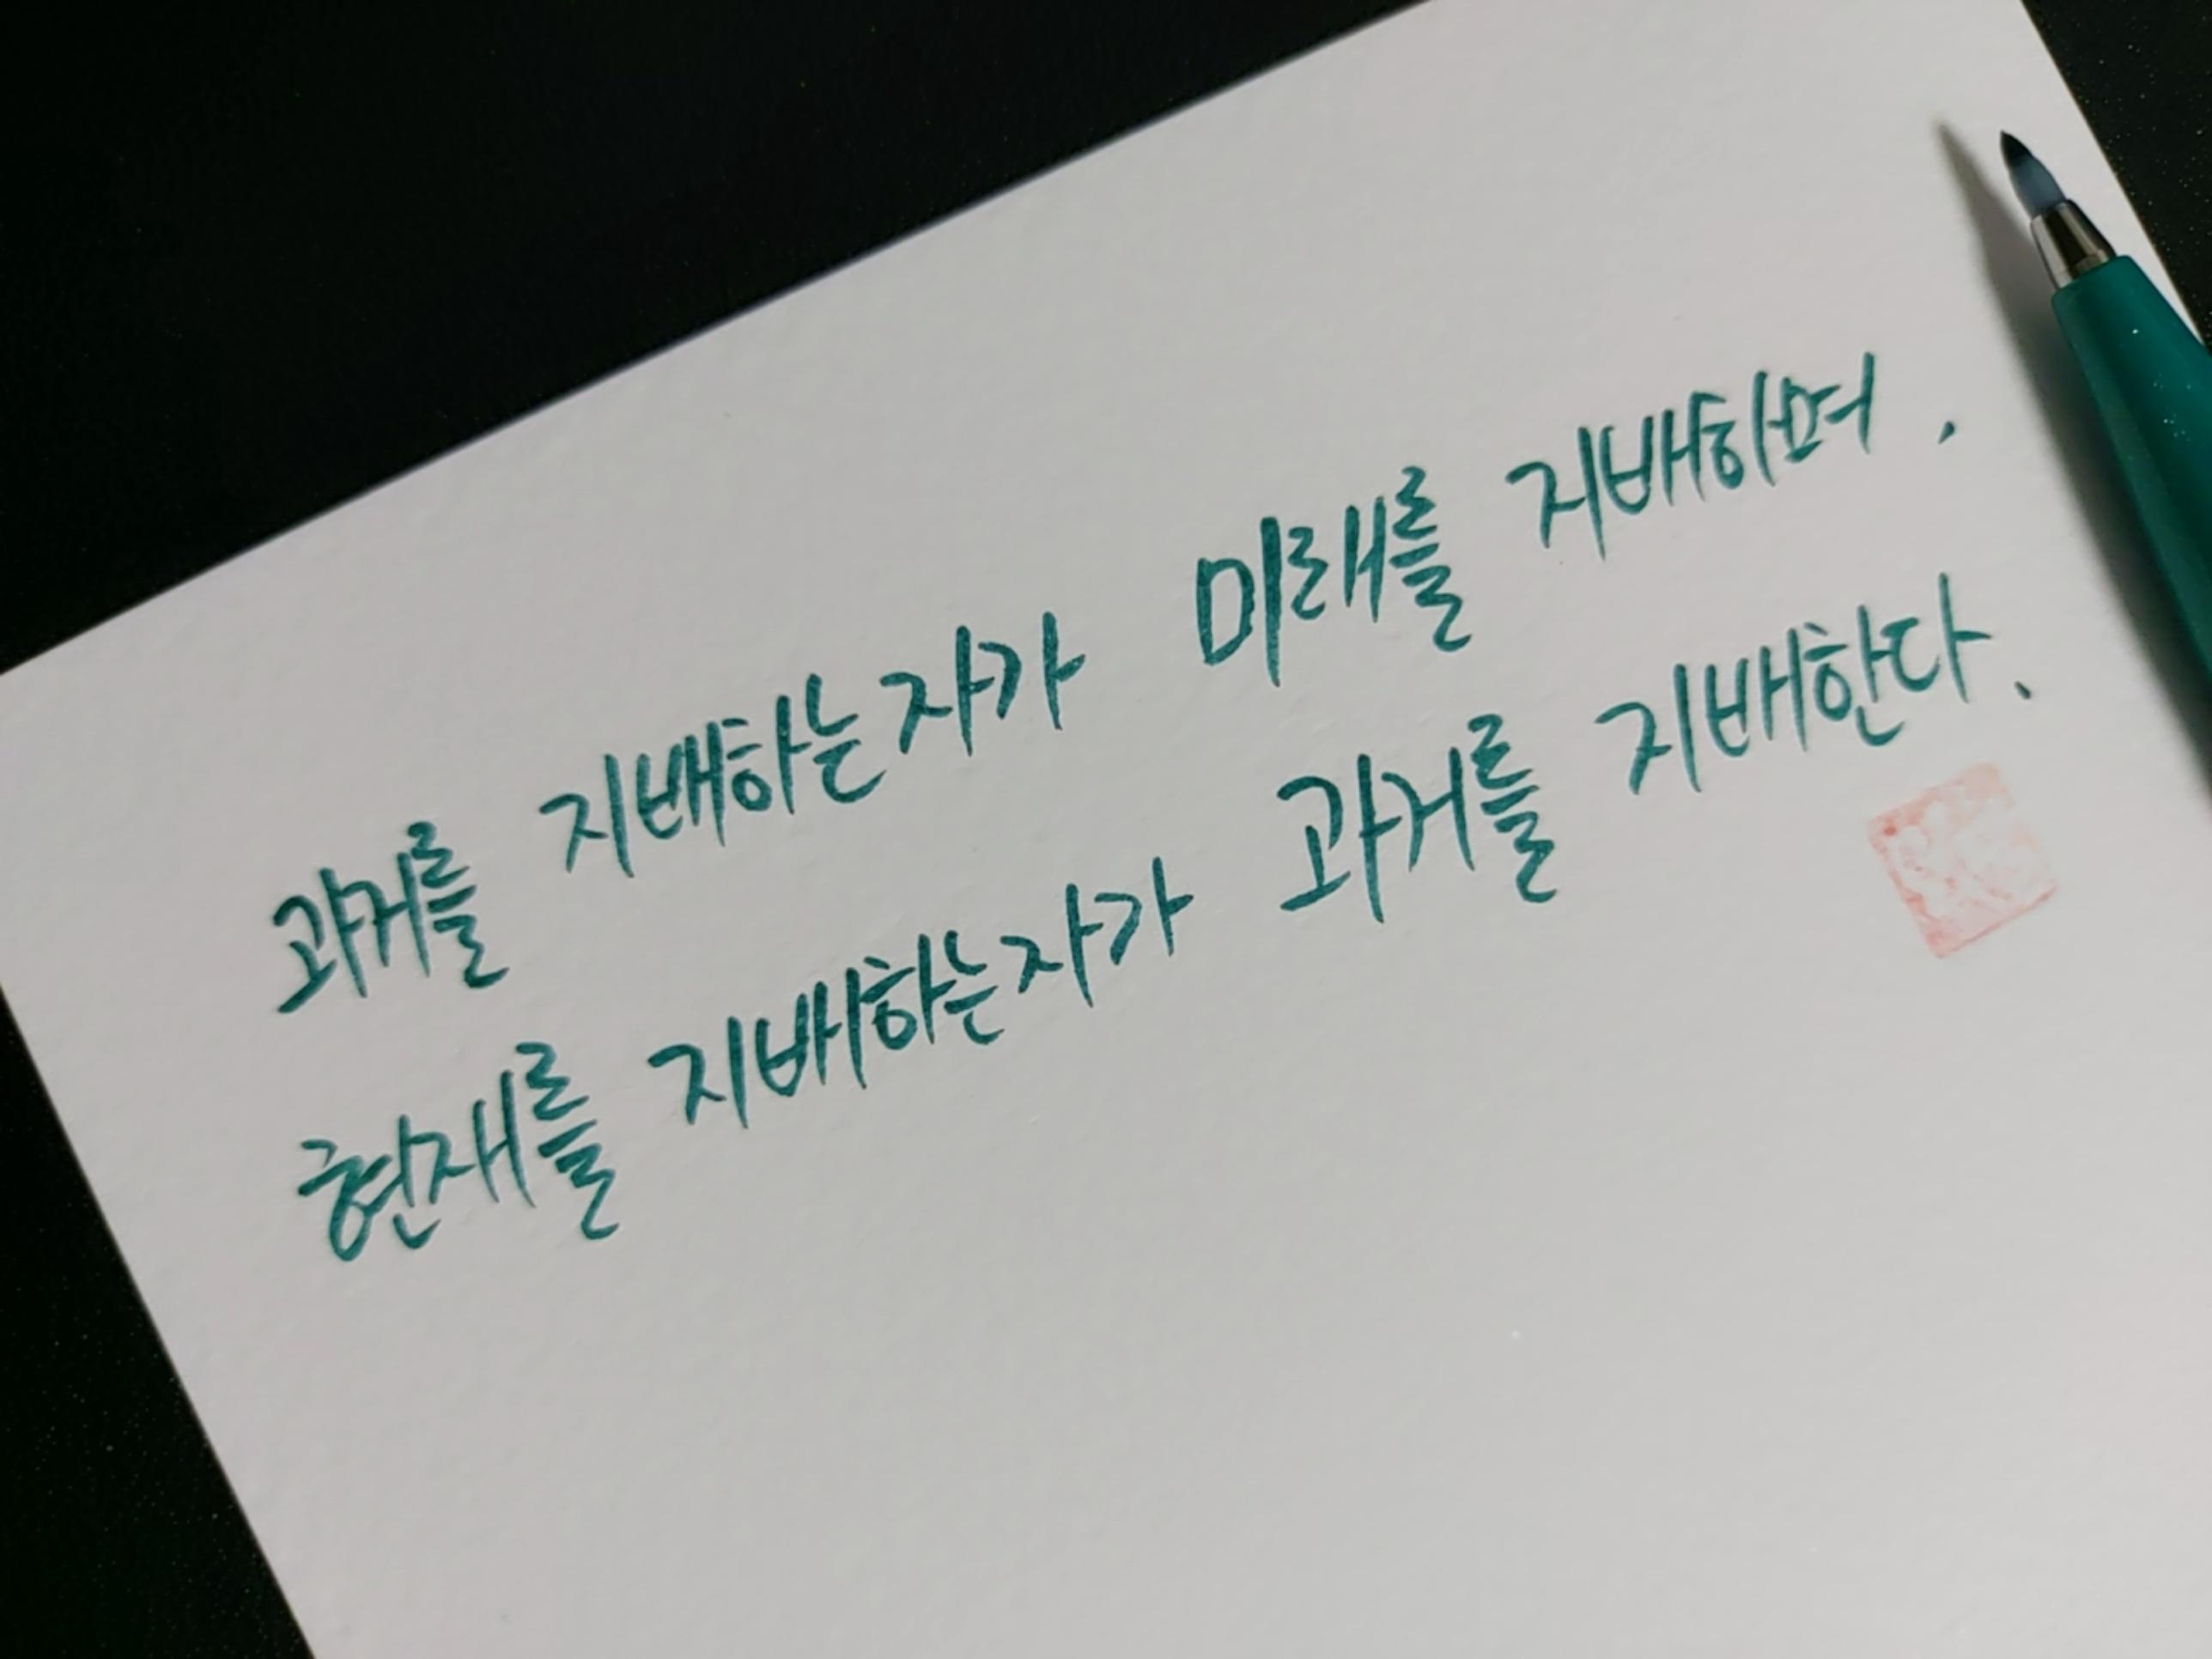 과거를 지배하는자가 미래를 지배하며,
현재를 지배하는자가 과거를 지배한다.